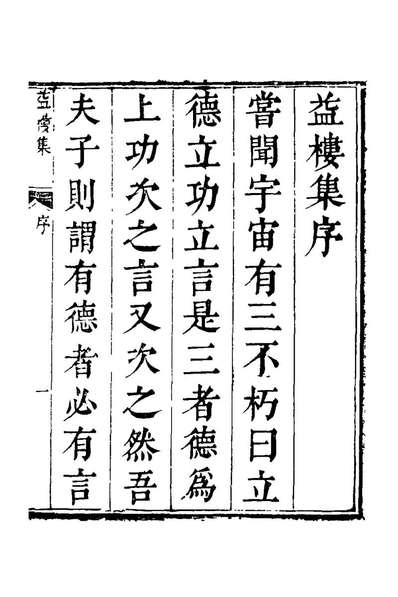 益樓集序
嘗聞宇宙有三不朽曰立
德立功立言是三者德爲
上功次之言又次之然吾
夫子則謂有德者必有言
益樓集
序
一